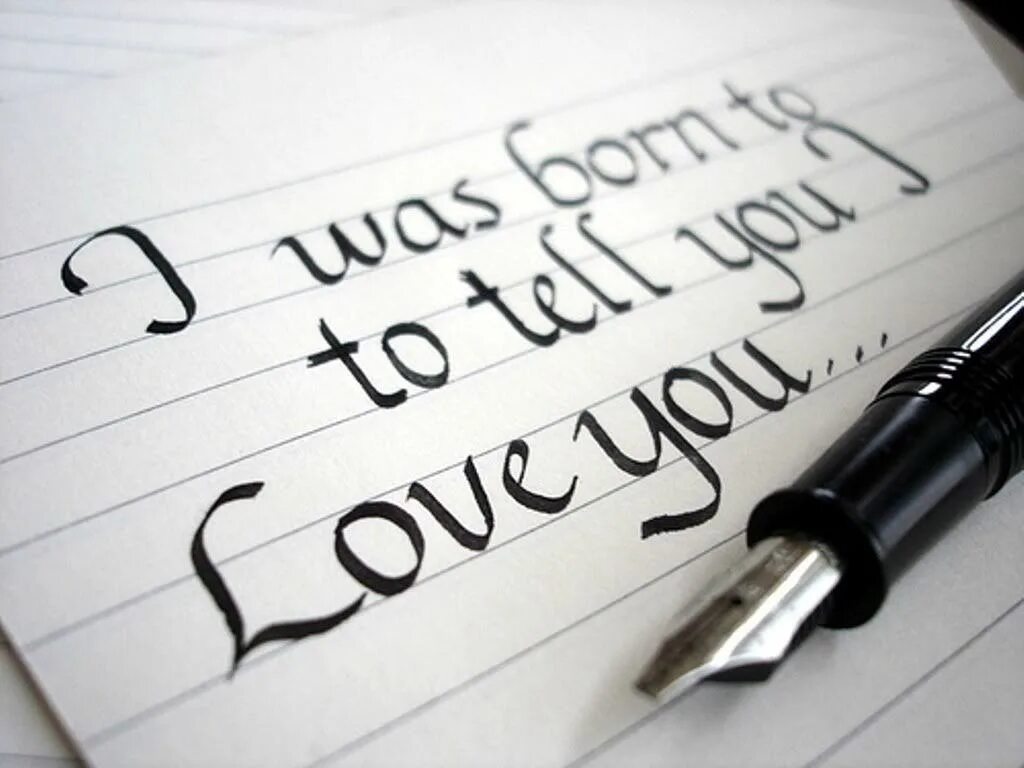 I was born to
to tell you I
Love you....